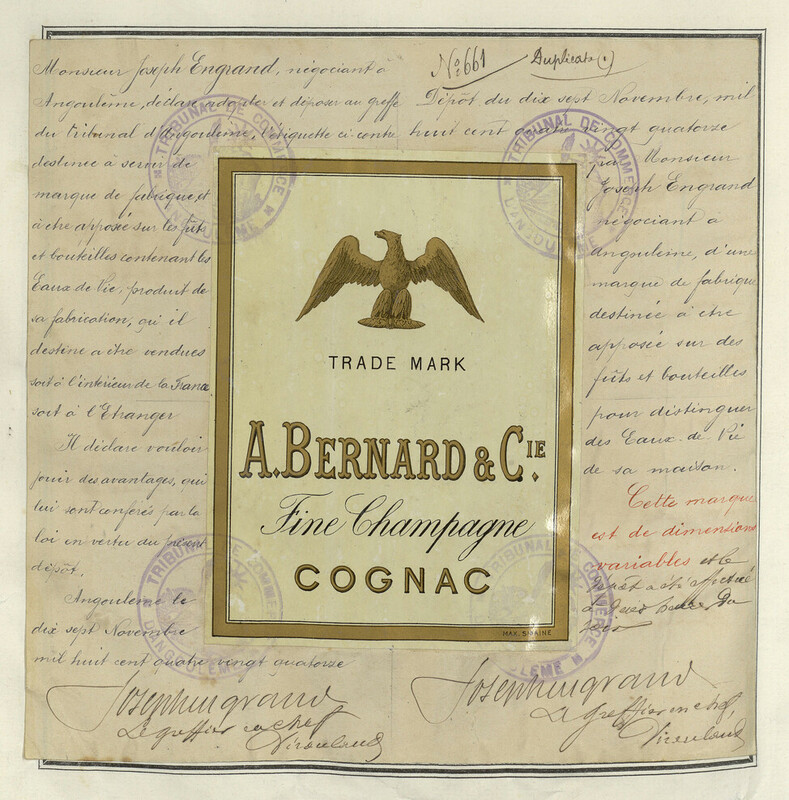 Monsieur Joseph Engrand, négociant à
Angoulême, déclare adopter et déposer au greffe
du tribunal d'Angoulême, l'étiquette ci contre
destinée à servir de
marque de fabrique, et
à être apposée sur les fûts
et bouteilles contenant les
Eaux de Vie, produit de
sa fabrication, qu'il
destine a être vendues
soit à l'intérieur de la France
soit à l'Etranger
Il déclare vouloir
jouir des avantages, qui
lui sont conférés par la
loi en vertu du présent
dépôt.
Angoulême le
dix sept Novembre
mil huit cent quatre vingt quatorze
Joseph Engrand
Le greffier en chef
No. 661
Duplicata (.)
Dépôt du dix sept Novembre, mil
huit cent quatre vingt quatorze
par Monsieur
Joseph Engrand
négociant à
Angoulême, d'une
marque de fabrique
destinée à être
apposée sur des
fûts et bouteilles
pour distinguer
des Eaux-de-Vie
de sa maison.
Cette marque
est de dimensions
variables et le
dépôt a été effectué
à deux heures du
soir
Joseph Engrand
Le Greffier en chef,
TRADE MARK
A. BERNARD & CIE.
Fine Champagne
COGNAC
MAX. SIRAINE
TRIBUNAL DE COMMERCE
D'ANGOULEME
TRIBUNAL DE COMMERCE
D'ANGOULEME
TRIBUNAL DE COMMERCE
D'ANGOULEME
TRIBUNAL DE COMMERCE
D'ANGOULEME